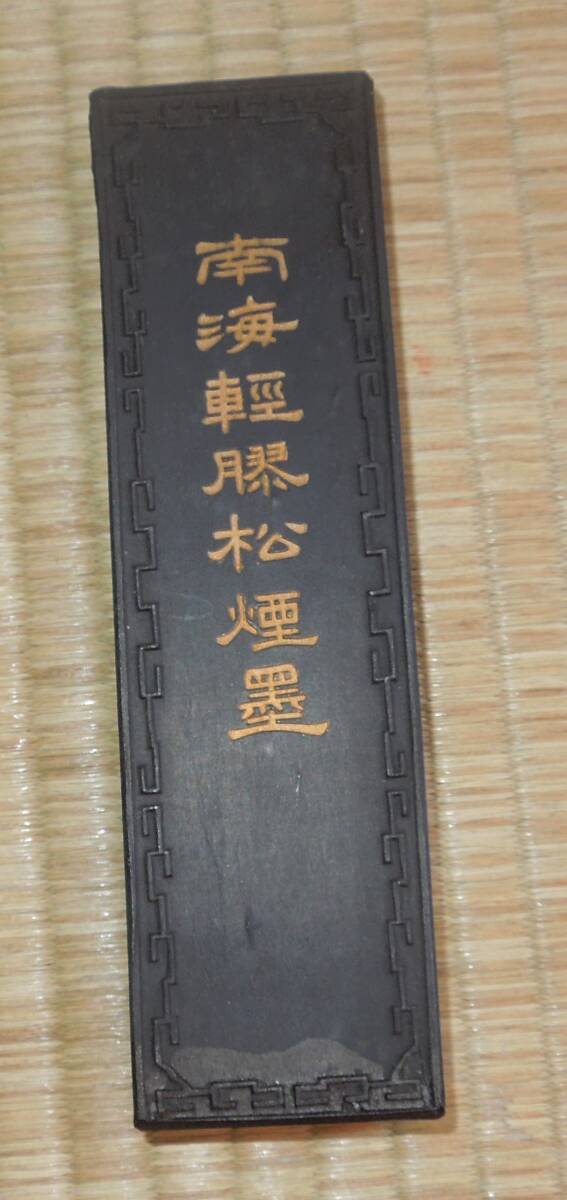 南海輕膠松煙墨